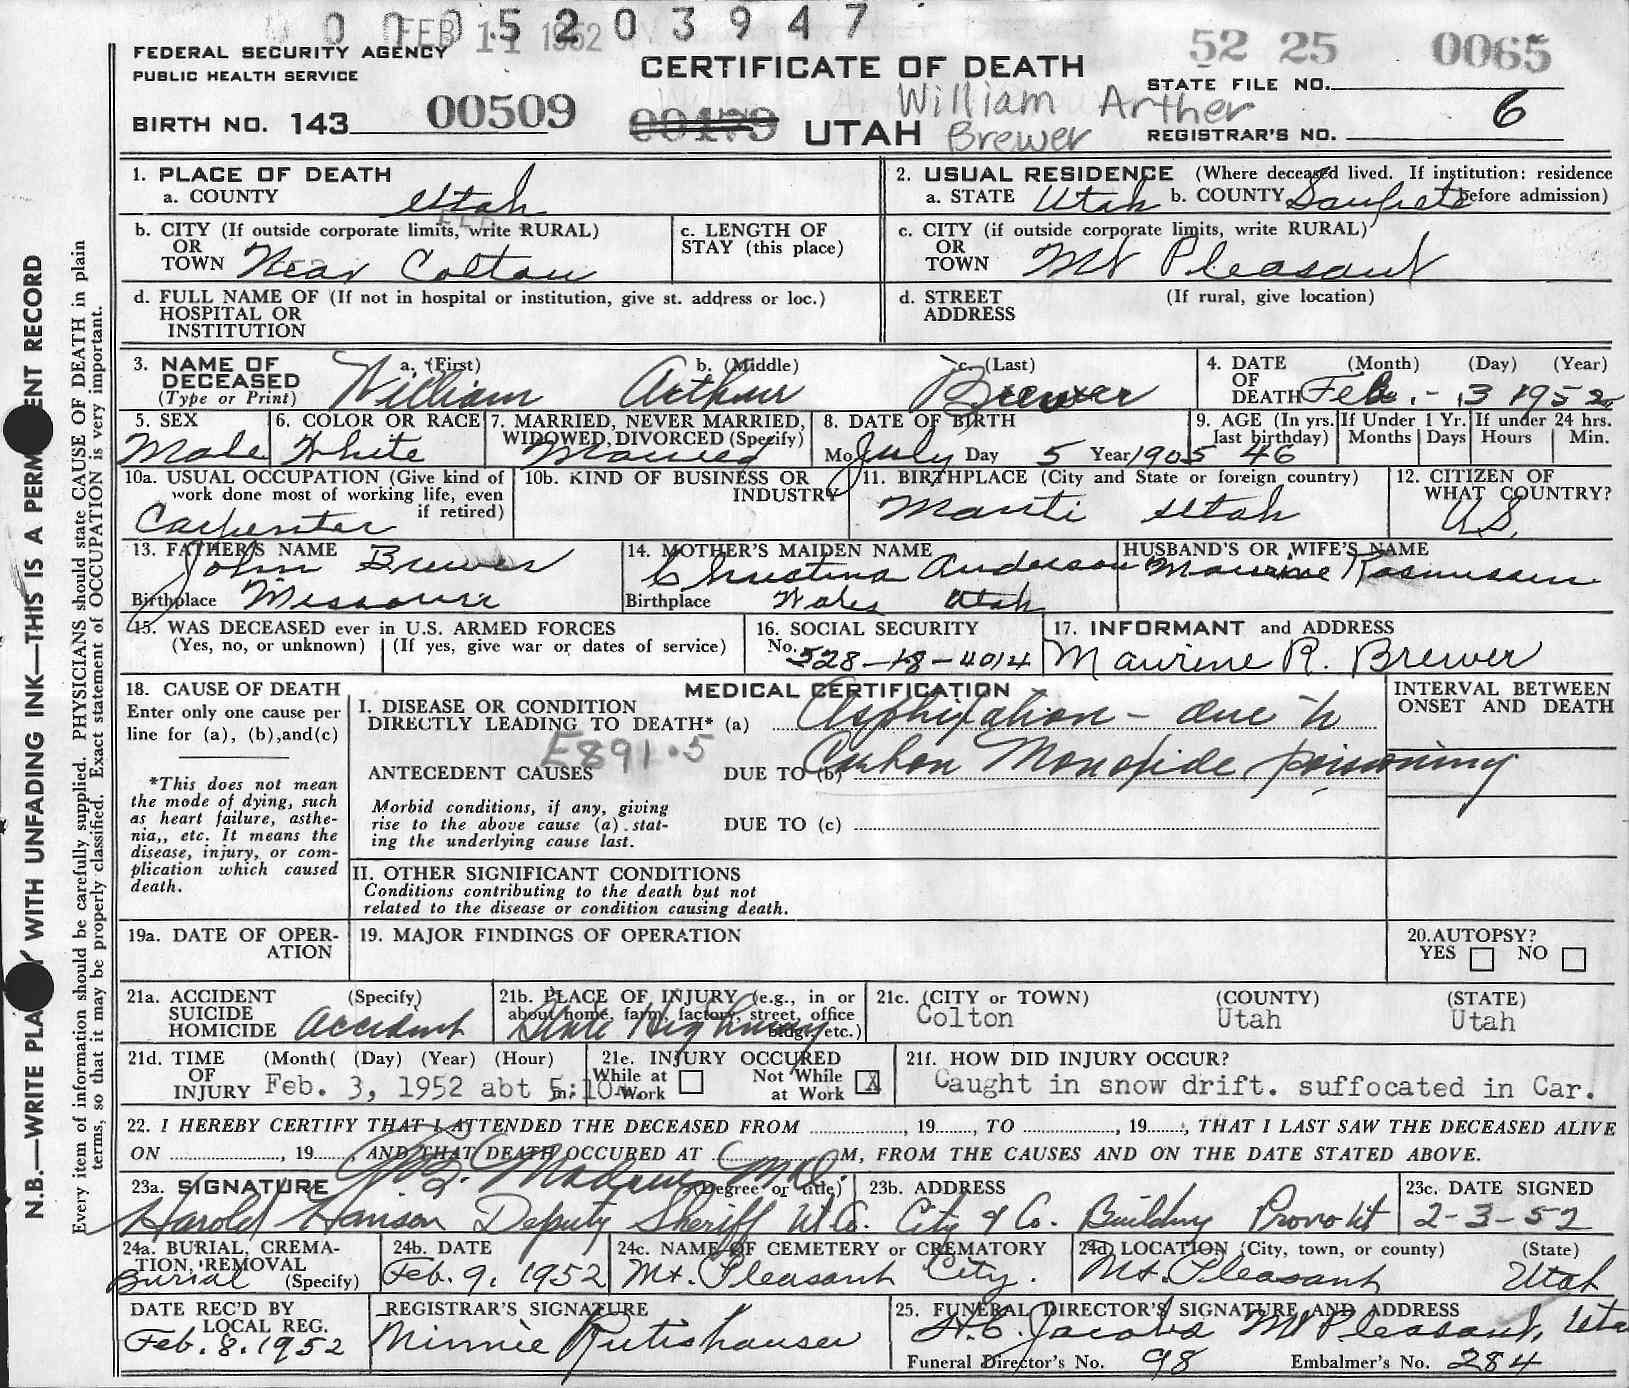 0 0 0 5 2 0 3 9 4 7
FEB 11 1952
52 25 0065
FEDERAL SECURITY AGENCY
PUBLIC HEALTH SERVICE
CERTIFICATE OF DEATH
STATE FILE NO.
BIRTH NO. 143 00509
00179
UTAH
William Arther
Brewer
REGISTRAR'S NO. 6
N.B.—WRITE PLA Y WITH UNFADING INK—THIS IS A PERM ENT RECORD
Every item of information should be carefully supplied. PHYSICIANS should state CAUSE OF DEATH in plain
terms, so that it may be properly classified. Exact statement of OCCUPATION is very important.
1. PLACE OF DEATH
a. COUNTY Utah
2. USUAL RESIDENCE (Where deceased lived. If institution: residence
before admission)
a. STATE Utah b. COUNTY Sanpete
b. CITY (If outside corporate limits, write RURAL)
OR
TOWN Near Colton
c. LENGTH OF
STAY (this place)
c. CITY (if outside corporate limits, write RURAL)
OR
TOWN Mt Pleasant
d. FULL NAME OF (If not in hospital or institution, give st. address or loc.)
HOSPITAL OR
INSTITUTION
d. STREET
ADDRESS
(If rural, give location)
3. NAME OF
DECEASED
(Type or Print)
a. (First) b. (Middle) c. (Last)
William Arthur Brewer
4. DATE
OF
DEATH
(Month) (Day) (Year)
Feb. - 3 1952
5. SEX
Male
6. COLOR OR RACE
White
7. MARRIED, NEVER MARRIED,
WIDOWED, DIVORCED (Specify)
Married
8. DATE OF BIRTH
Mo July Day 5 Year 1905
9. AGE (In yrs.
last birthday)
46
If Under 1 Yr.
Months Days
If under 24 hrs.
Hours Min.
10a. USUAL OCCUPATION (Give kind of
work done most of working life, even
if retired)
Carpenter
10b. KIND OF BUSINESS OR
INDUSTRY
11. BIRTHPLACE (City and State or foreign country)
Manti Utah
12. CITIZEN OF
WHAT COUNTRY?
U.S.
13. FATHER'S NAME
John Brewer
Birthplace Missouri
14. MOTHER'S MAIDEN NAME
Christina Anderson
Birthplace Wales Utah
HUSBAND'S OR WIFE'S NAME
Maurine Rasmussen
15. WAS DECEASED ever in U.S. ARMED FORCES
(Yes, no, or unknown) (If yes, give war or dates of service)
16. SOCIAL SECURITY
No. 528-18-4014
17. INFORMANT and ADDRESS
Maurine R. Brewer
18. CAUSE OF DEATH
Enter only one cause per
line for (a), (b),and(c)
*This does not mean
the mode of dying, such
as heart failure, asthe-
nia,, etc. It means the
disease, injury, or com-
plication which caused
death.
MEDICAL CERTIFICATION
I. DISEASE OR CONDITION
DIRECTLY LEADING TO DEATH* (a) Asphixation - due to
E891.5
ANTECEDENT CAUSES
DUE TO (b) Carbon Monoxide poisoning
Morbid conditions, if any, giving
rise to the above cause (a) stat-
ing the underlying cause last.
DUE TO (c)
II. OTHER SIGNIFICANT CONDITIONS
Conditions contributing to the death but not
related to the disease or condition causing death.
INTERVAL BETWEEN
ONSET AND DEATH
19a. DATE OF OPER-
ATION
19. MAJOR FINDINGS OF OPERATION
20.AUTOPSY?
YES NO
21a. ACCIDENT
SUICIDE
HOMICIDE
(Specify)
Accident
21b. PLACE OF INJURY (e.g., in or
about home, farm, factory, street, office
bldg. etc.)
State Highway
21c. (CITY or TOWN) (COUNTY) (STATE)
Colton Utah Utah
21d. TIME
OF
INJURY
(Month( (Day) (Year) (Hour)
Feb. 3, 1952 abt 5:10 m.
21e. INJURY OCCURED
While at
Work
Not While
at Work X
21f. HOW DID INJURY OCCUR?
Caught in snow drift. suffocated in Car.
22. I HEREBY CERTIFY THAT I ATTENDED THE DECEASED FROM , 19 , TO , 19 , THAT I LAST SAW THE DECEASED ALIVE
ON , 19 , AND THAT DEATH OCCURED AT M, FROM THE CAUSES AND ON THE DATE STATED ABOVE.
23a. SIGNATURE (Degree or title)
M.D.
Harold Hanson Deputy Sheriff Ut Co.
23b. ADDRESS
City & Co. Building Provo Ut
23c. DATE SIGNED
2-3-52
24a. BURIAL, CREMA-
TION, REMOVAL
(Specify)
Burial
24b. DATE
Feb. 9, 1952
24c. NAME OF CEMETERY or CREMATORY
Mt. Pleasant City.
24d. LOCATION (City, town, or county) (State)
Mt. Pleasant Utah
DATE REC'D BY
LOCAL REG.
Feb. 8, 1952
REGISTRAR'S SIGNATURE
Minnie Rutishauser
25. FUNERAL DIRECTOR'S SIGNATURE AND ADDRESS
H.C. Jacobs Mt Pleasant, Uta
Funeral Director's No. 98 Embalmer's No. 284